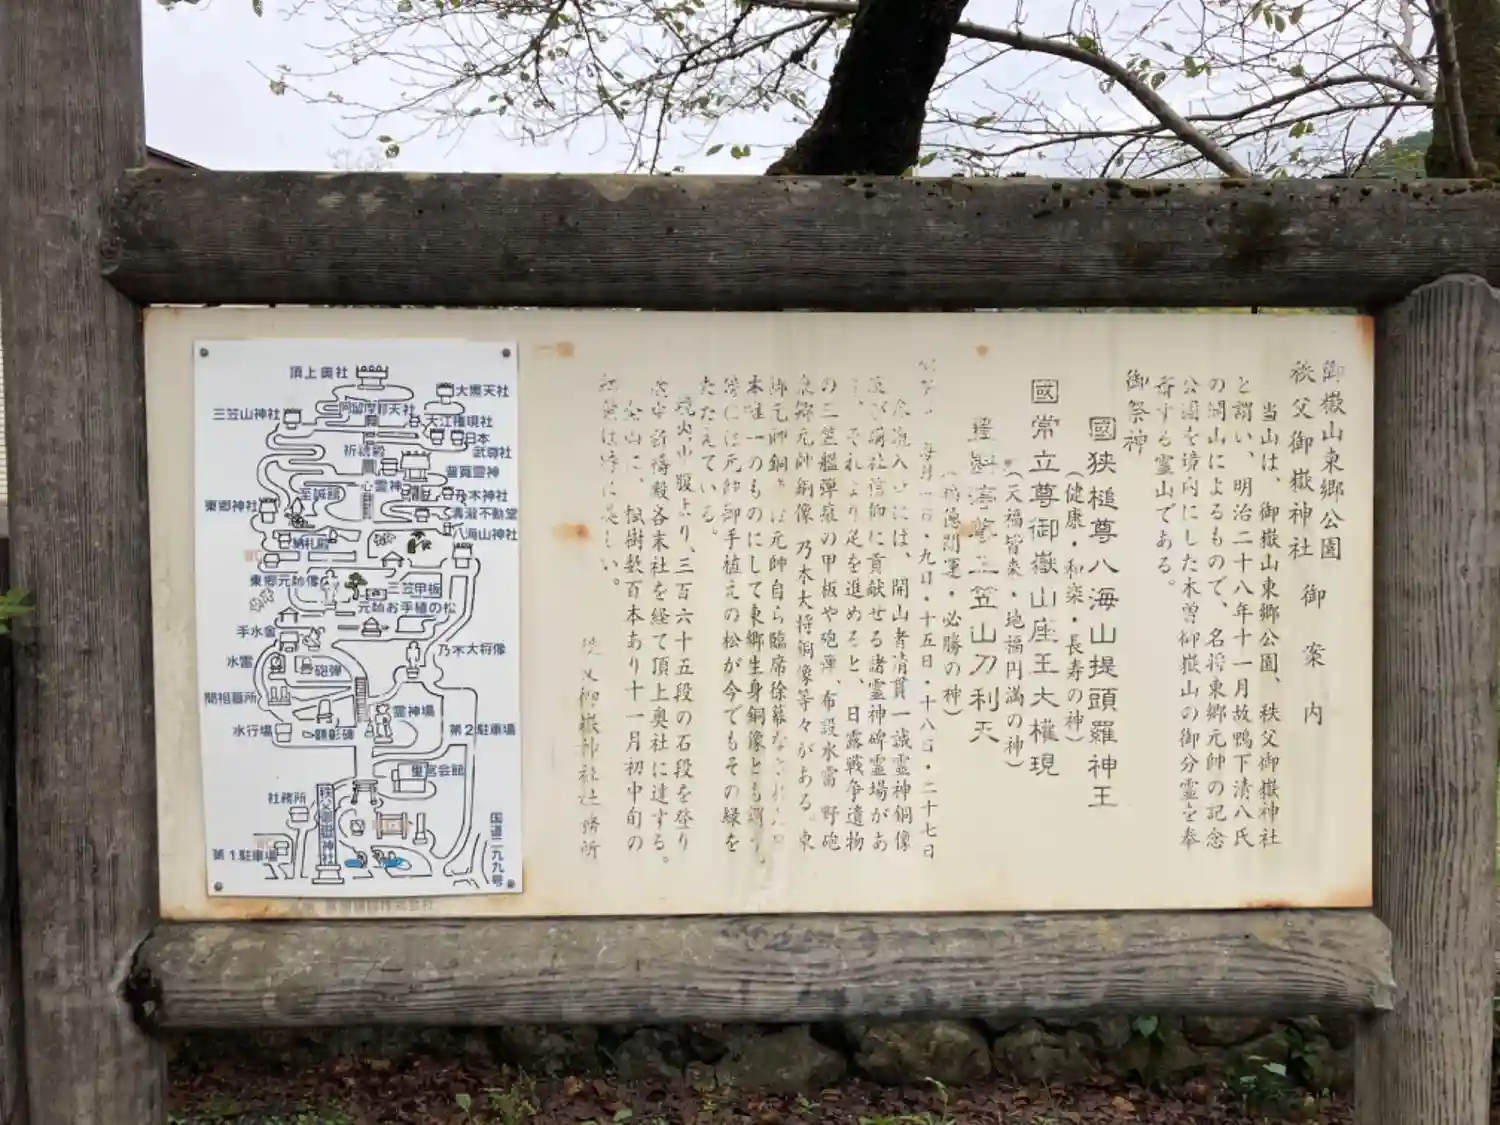 御嶽山東郷公園
秩父御嶽神社 御案内
当山は、御嶽山東郷公園、秩父御嶽神社
と謂い、明治二十八年十一月故鴨下清八氏
の開山によるもので、名将東郷元帥の記念
公園を境内にした木曽御嶽山の御分霊を奉
斉する霊山である。
御祭神
國狭槌尊八海山提頭羅神王
(健康・和楽・長寿の神)
國常立尊御嶽山座王大権現
(天福皆来・地福円満の神)
三笠山刀利天
開運・必勝の神)
毎月一日・九日・十五日・十八日・二十七日
には、開山者清貫一誠霊神銅像
に貢献せる諸霊神碑霊場があ
それより足を進めると、日露戦争遺物
の三笠艦弾痕の甲板や砲弾、布設水雷 野砲
東郷元帥銅像 乃木大将銅像等々がある。東
郷元帥銅像は元帥自ら臨席除幕なされた日
本唯一のものにして東郷生身銅像とも謂う。
傍には元帥御手植えの松が今でもその緑を
たたえている。
山腹より、三百六十五段の石段を登り
途中祈祷殿各末社を経て頂上奥社に達する。
全山に、楓樹数百本あり十一月初中旬の
紅葉は特に美しい。
秩父御嶽神社社務所
頂上奥社
大黒天社
三笠山神社
阿留摩耶天社
大江権現社
日本
武尊社
祈祷殿
普寛霊神
心霊神
至誠館
乃木神社
東郷神社
清瀧不動堂
八海山神社
納札殿
東郷元帥像
三笠甲板
元帥お手植の松
手水舎
乃木大将像
水雷
砲弾
開祖墓所
霊神場
水行場
顕彰碑
第2駐車場
里宮会館
社務所
秩父御嶽神社
第1駐車場
国道二九九号